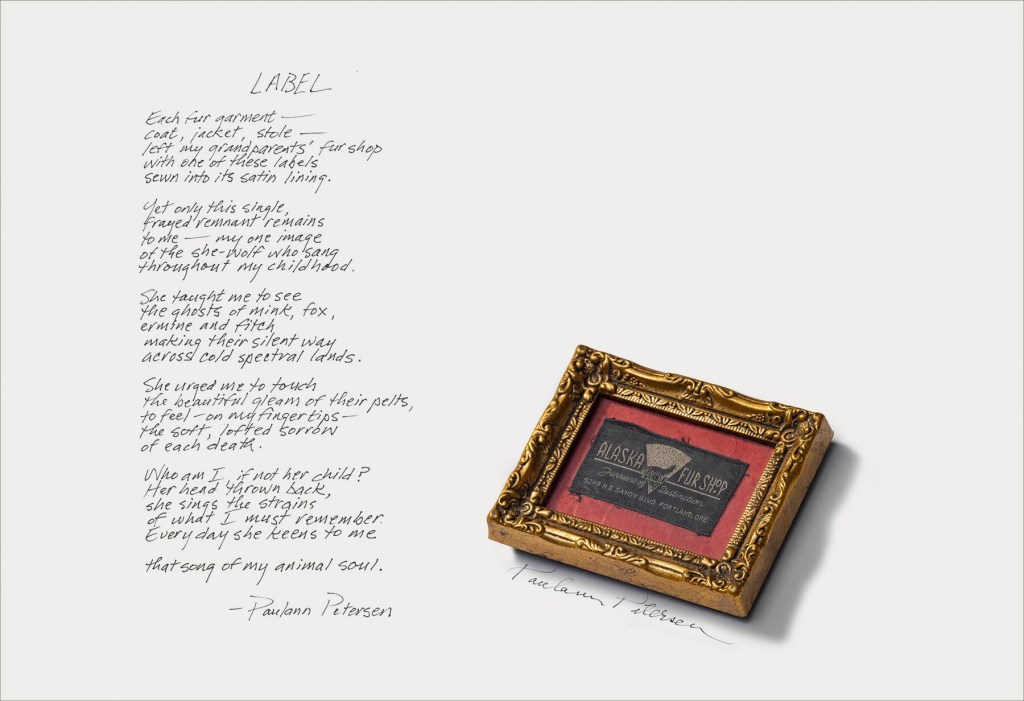 LABEL
Each fur garment —
coat, jacket, stole —
left my grandparents' fur shop
with one of these labels
sewn into its satin lining.
Yet only this single,
frayed remnant remains
to me — my one image
of the she-wolf who sang
throughout my childhood.
She taught me to see
the ghosts of mink, fox,
ermine and fitch
making their silent way
across cold spectral lands.
She urged me to touch
the beautiful gleam of their pelts,
to feel — on my fingertips —
the soft, lofted sorrow
of each death.
Who am I if not her child?
Her head thrown back,
she sings the strains
of what I must remember.
Every day she keens to me
that song of my animal soul.
— Paulann Petersen
ALASKA FUR SHOP
Furriers of Distinction
N.E. SANDY BLVD. PORTLAND, ORE.
Paulann Petersen